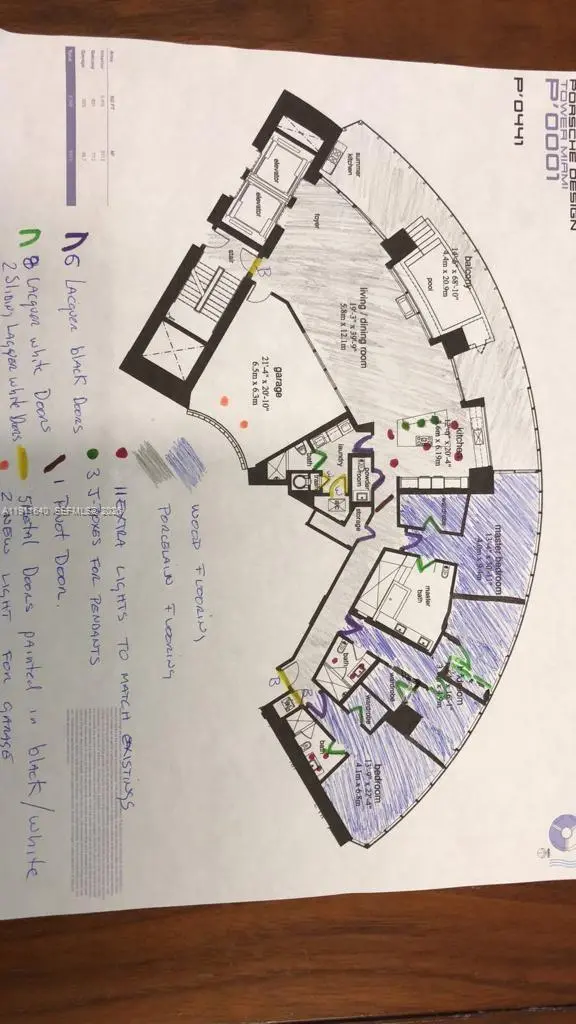 PORSCHE DESIGN
TOWER MIAMI
P'0001
P'0441
summer
kitchen
elevator
elevator
foyer
stair
B
balcony
14'-8" x 68'-10"
4.4m x 20.9m
pool
living / dining room
19'-3" x 39'-9"
5.8m x 12.1m
garage
21'-4" x 20'-10"
6.5m x 6.3m
kitchen
laundry
powder
room
bath
storage
master bedroom
master
bath
bath
wardrobe
B
B
bath
bedroom
13'-9" x 22'-4"
4.1m x 6.8m
6 Lacquer black Doors
8 Lacquer white Doors
2 Sliding Lacquer white Doors
5 Metal Doors painted in black/white
1 Pivot Door.
2 NEW LIGHT FOR GARAGE
11 EXTRA LIGHTS TO MATCH EXISTINGS
3 J-BOXES FOR PENDANTS
WOOD FLOORING
PORCELAIN FLOORING